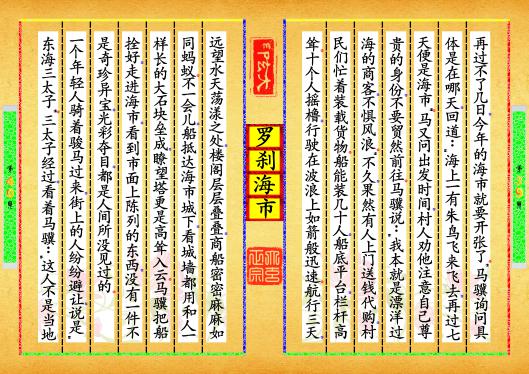 再过不了几日今年的海市就要开张了。马骥询问具
体是在哪天回道：海上一有朱鸟飞来飞去再过七
天便是海市。马又问出发时间村人劝他注意自己尊
贵的身份不要贸然前往马骥说：我本就是漂洋过
海的商客不惧风浪。不久果然有人上门送钱代购村
民们忙着装载货物船能装几十人船底平台栏杆高
耸十个人摇橹行驶在波浪上如箭般迅速航行三天
罗刹海市
远望水天荡漾之处楼阁层层叠叠商船密密麻麻如
同蚂蚁不一会儿船抵达海市城下看城墙都用和人一
样长的大石块垒成瞭望塔更是高耸入云马骥把船
拴好走进海市看到市面上陈列的东西没有一件不
是奇珍异宝光彩夺目都是人间所没见过的
一个年轻人骑着骏马过来街上的人纷纷避让说是
东海三太子。三太子经过看着马骥：这人不是当地